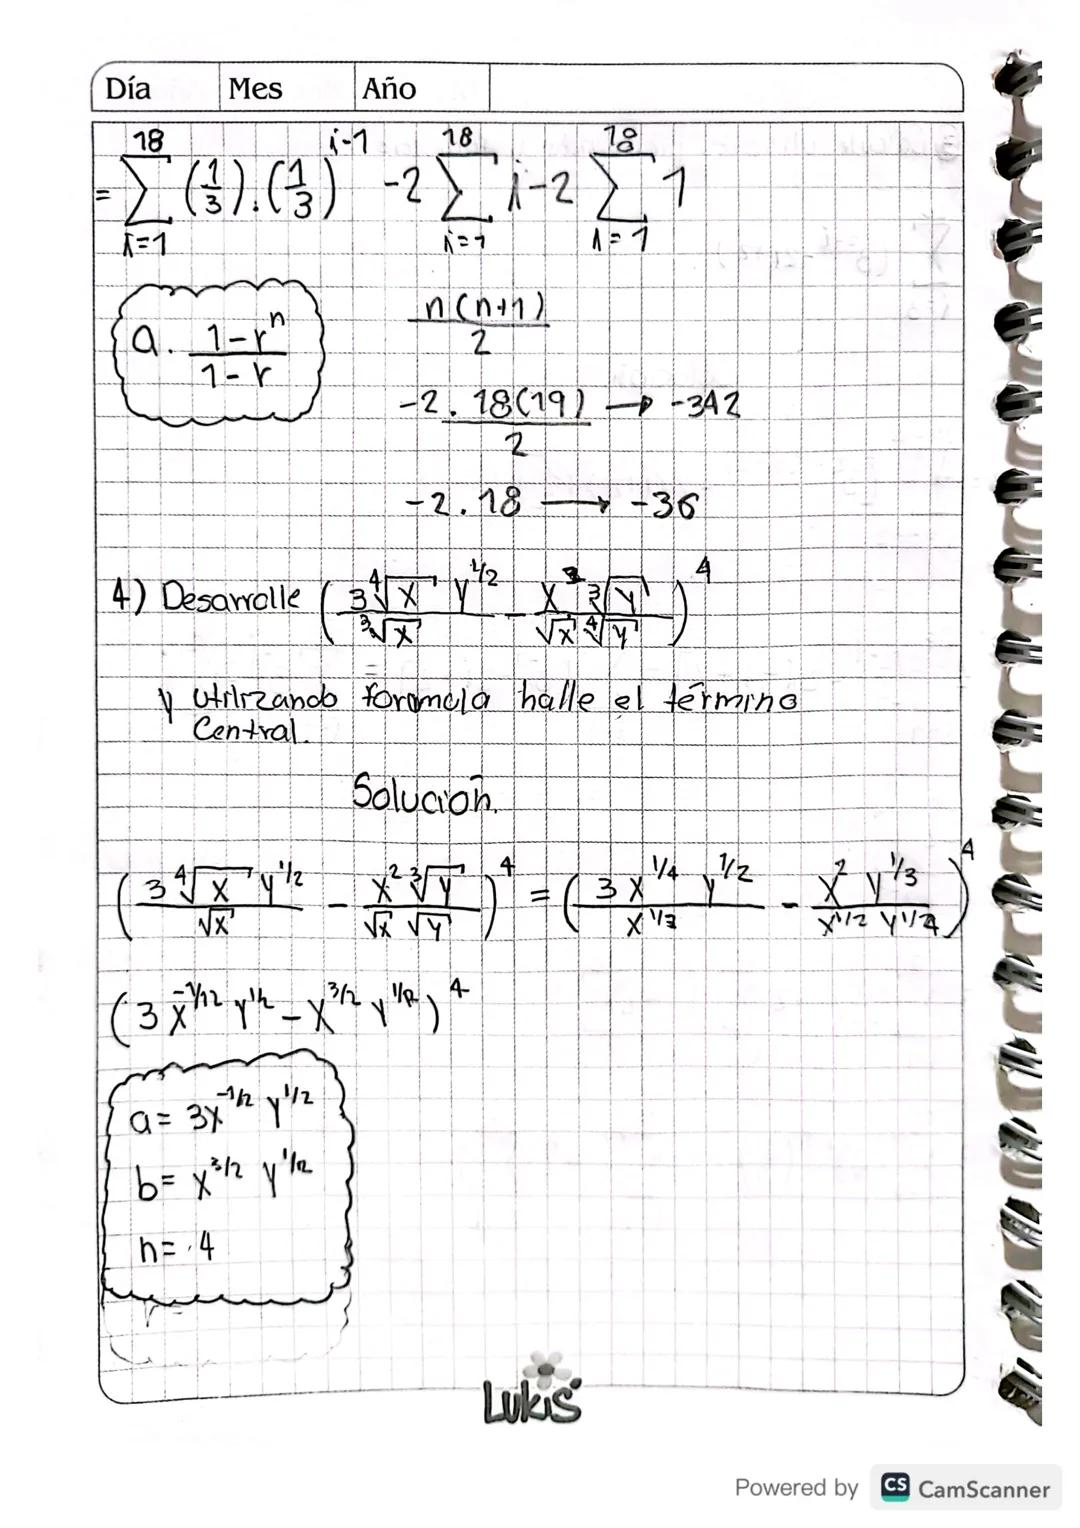 Día Mes Año
= \sum_{i=1}^{18} (1/3).(1/3)^{i-1} -2 \sum_{i=1}^{18} i -2 \sum_{i=1}^{18} 1
a. (1-r^n)/(1-r)
n(n+1)/2
-2. 18(19)/2 → -342
-2.18 → -36
4) Desarrolle ( (3 ∜x y^{1/2})/(∛x) - (x^2 ∛y)/(√x ∜y) )^4
y utilizando formula halle el término
Central.
Solución.
( (3 ∜x y^{1/2})/(√x) - (x^2 ∛y)/(√x √y) )^4 = ( (3 x^{1/4} y^{1/2})/(x^{1/3}) - (x^2 y^{1/3})/(x^{1/2} y^{1/4}) )^4
(3 x^{-1/12} y^{1/2} - x^{3/2} y^{1/12})^4
a = 3x^{-1/12} y^{1/2}
b = x^{3/2} y^{1/12}
n = 4
LUKIS
Powered by CS CamScanner